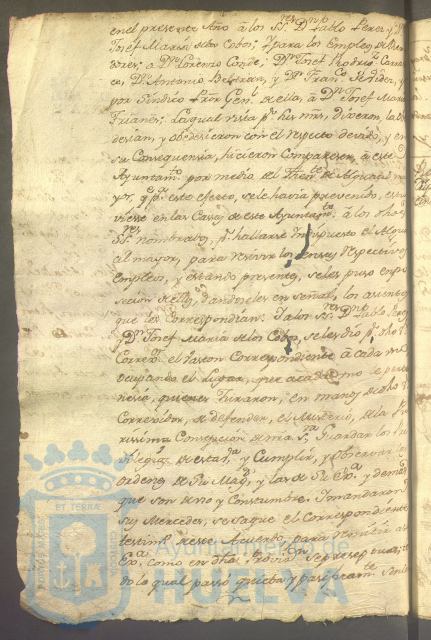 en el presente Año á los SS.res D.n Pablo Perez, y D.n
Josef Maria de los Cobos, y para los Empleos de
dores, á D.n Lorenzo Conde, D.n Josef
co, D.n Antonio Beltran, y D.n Fran.co
por Sindico Gen.l de ella, á D.n Josef Maria
La qual vista p.r sus mrs. dixeron, la
decian, y obedecieron con el respecto devido, y en
su Consequencia, hicieron Comparecer, á este
Ayuntam.to por medio del Then.te de Alguacil ma
yor, q.e p.a este efecto, se le havia prevenido, estu
viese en las Casas de este Ayuntam.to á los dhos
SS.res nombrados, p.r hallarse indispuesto el Algua
cil mayor, para recivir los respectivos
empleos, y estando presentes, se les puso en po
secion de ellos, dandoseles en señal, los asientos
que les Correspondian. Y a los SS.res D.n Pablo Perez
y D.n Josef Maria de los Cobos, se les dió p.r dho S.r
Correx.or el Baston Correspondiente á cada uno
ocupando el Lugar, que á cada uno le perte
necia, quienes Juraron, en manos de dho S.r
Correxidor, de defender, el Misterio, de la Pu
rissima Concepcion de Maria S.ma Guardar los Pri
vilegios de esta V.a y Cumplir, y Observar las
ordenes de Su Mag.d y las de Su Ex.a y demas
que son de uso y Constumbre. Y mandaron
Sus Mercedes, se saque el Correspondiente
testim.o de este Acuerdo, para remitir á S.
Ex.a como en dha Provi.on se
do lo qual pasó quieta y pasificam.te
ET TERRAE
Ayuntamiento de
HUELVA